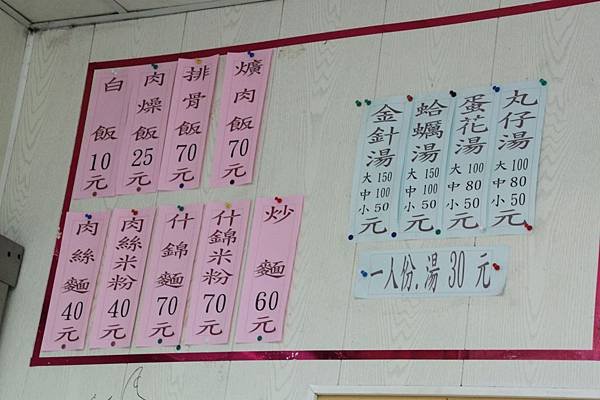 白飯10元
肉燥飯25元
排骨飯70元
爌肉飯70元
肉絲麵40元
肉絲米粉40元
什錦麵70元
什錦米粉70元
炒麵60元
金針湯大150中100小50元
蛤蠣湯大150中100小50元
蛋花湯大100中80小50元
丸仔湯大100中80小50元
一人份.湯30元